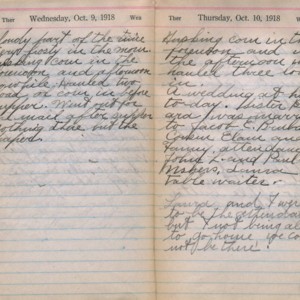 Ther Wednesday, Oct. 9, 1918 Wea
Cloudy part of the time
and frosty in the morn
Husking corn in the
forenoon and afternoon
Hauled a
load of corn in before
supper. Went out for
the mail after supper
nothing there but the
papers.
Ther Thursday, Oct. 10, 1918 Wea
Husking corn in the
forenoon and
the afternoon
hauled three loads
in
A wedding at
to-day. Sister
and was married
to Jacob C.
Cousin Clara and
Fanny, attendants
John L. and Paul
table waiters.
Laura and I were
to be the attendants
but I not being able
to go home we could
not be there.